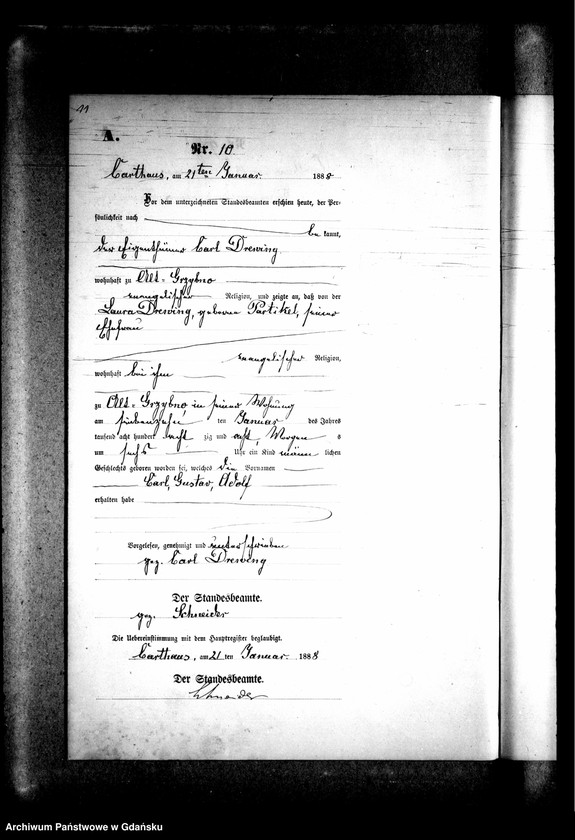 11
A.
Nr. 10
Carthaus, am 21ten Januar 1888
Vor dem unterzeichneten Standesbeamten erschien heute, der Per-
sönlichkeit nach
be kannt,
der Eigenthümer Carl Drewing
wohnhaft zu Alt-Grzybno
evangelischer Religion, und zeigte an, daß von der
Laura Drewing, geboren Partikel, seiner
Ehefrau
evangelischer Religion,
wohnhaft bei ihm
zu Alt-Grzybno, in seiner Wohnung
am siebenzehn ten Januar des Jahres
tausend acht hundert acht zig und acht, Morgen s
um sechs Uhr ein Kind männ lichen
Geschlechts geboren worden sei, welches die Vornamen
Carl, Gustav, Adolf
erhalten habe
Vorgelesen, genehmigt und unterschrieben
gez. Carl Drewing
Der Standesbeamte.
gez. Schneider
Die Uebereinstimmung mit dem Hauptregister beglaubigt.
Carthaus, am 21 ten Januar 1888
Der Standesbeamte.
Schneider
Archiwum Państwowe w Gdańsku